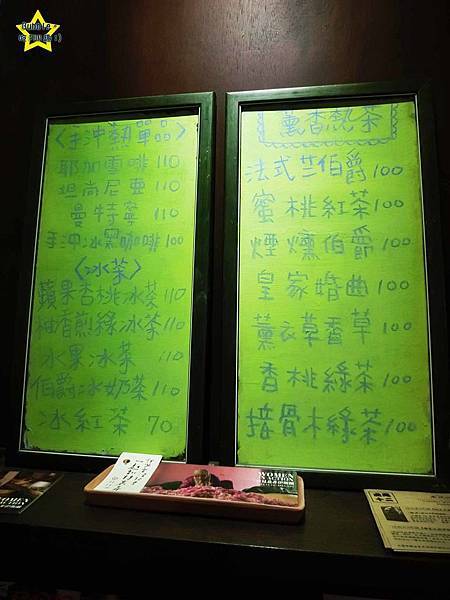 Bubble
〈手沖熱單品〉
耶加雪啡 110
坦尚尼亞 110
曼特寧 110
手沖冰黑咖啡 100
〈冰茶〉
蘋果香桃冰茶 110
柚香煎綠冰茶 110
水果冰茶 110
伯爵冰奶茶 110
冰紅茶 70
薰香熱茶
法式兰伯爵 100
蜜桃紅茶 100
煙燻伯爵 100
皇家婚曲 100
薰衣草香草 100
香桃綠茶 100
接骨木綠茶 100
WOMEN
N ACTION
WOMEN